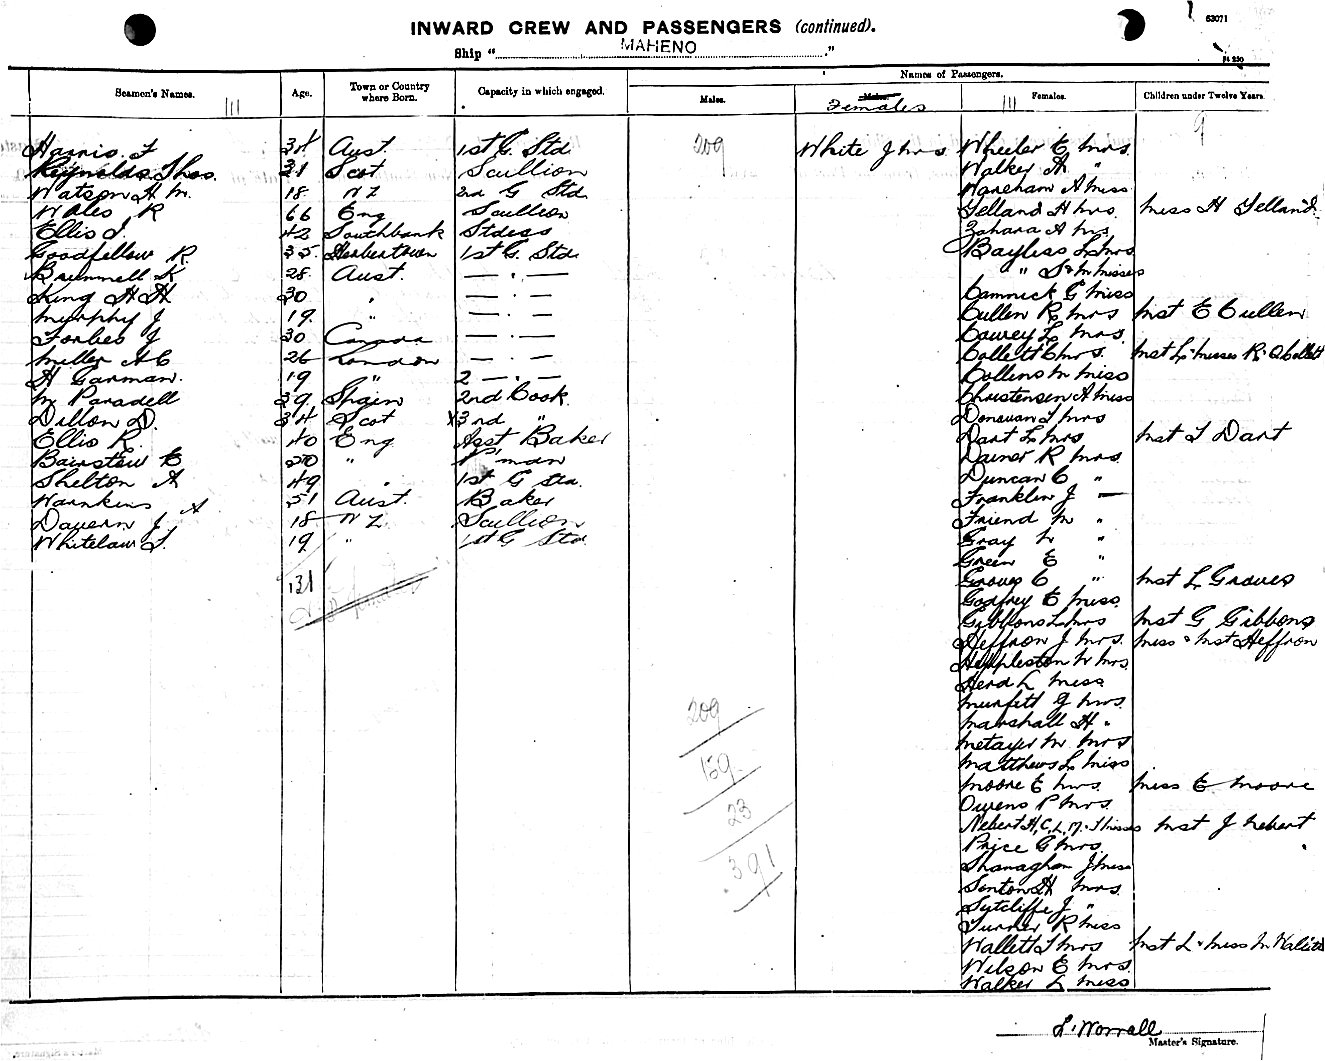 63071
INWARD CREW AND PASSENGERS (continued).
Ship " MAHENO ."
Names of Passengers.
Seamen's Names. Age. Town or Country where Born. Capacity in which engaged. Males. Females Females. Children under Twelve Years.
9
Harris F 34 Aust. 1st G. Std 209 White J Mrs Wheeler E Mrs.
Reynolds Thos. 21 Scot Scullion Walker A "
Watson H M. 18 NZ 2nd G Std Wareham A Miss
Wales R 66 Eng Scullion Telland H Mrs. Miss H Telland
Ellis J. 42 Southbank Stdess Zahara A Mrs
Goodfellow R 35. 1st G. Std. Bayliss L Mrs
Brummell K 28. Aust. — . — " S & M Misses
King H H 30 " — . — Cammick G Miss
Murphy J 19. " — . — Cullen R Mrs Mst E Cullen
Forbes J 30 Canada — . — Cowey L Mrs.
Miller A C 26 London — . — Collett C Mrs.
H Garman. 19 " 2 — . — Collins M Miss
M Paradell 39. Spain 2nd Cook Christensen A Miss
Dillon D. 34 Scot X3rd " Donovan T Mrs
Ellis R. 40 Eng Asst Baker Dart L Mrs Mst T Dart
Bairstew E 20 " P'man Dainer R Mrs.
Shelton A 49 " 1st G Std. Duncan C "
Hankins A 51 Aust. Baker Franklin J —
Davern J 18 NZ Scullion Friend M "
Whitelaw T. 19 " 1st G Std Gray M "
Green E "
131 Groves C " Mst L Groves
Godfrey E Miss.
Gibbons L Mrs Mst G Gibbons
Heffron J Mrs. Miss & Mst Heffron
Heppleston M Mrs.
Herd L Miss
209 Murfett G Mrs.
Marshall H "
Metayer M Mrs
159 Matthews L Miss
Moore E Mrs. Miss E Moore
23 Owens P Mrs.
Nebert H, C, L, M. Misses Mst J Nebert
Price G Mrs.
391 Shanaghan J Miss
Senton H Mrs.
Sutcliffe J "
Turner R Miss
Wallett T Mrs Mst L & Miss M Wallett
Wilson E Mrs.
Walker L Miss
L. Worrall
Master's Signature.